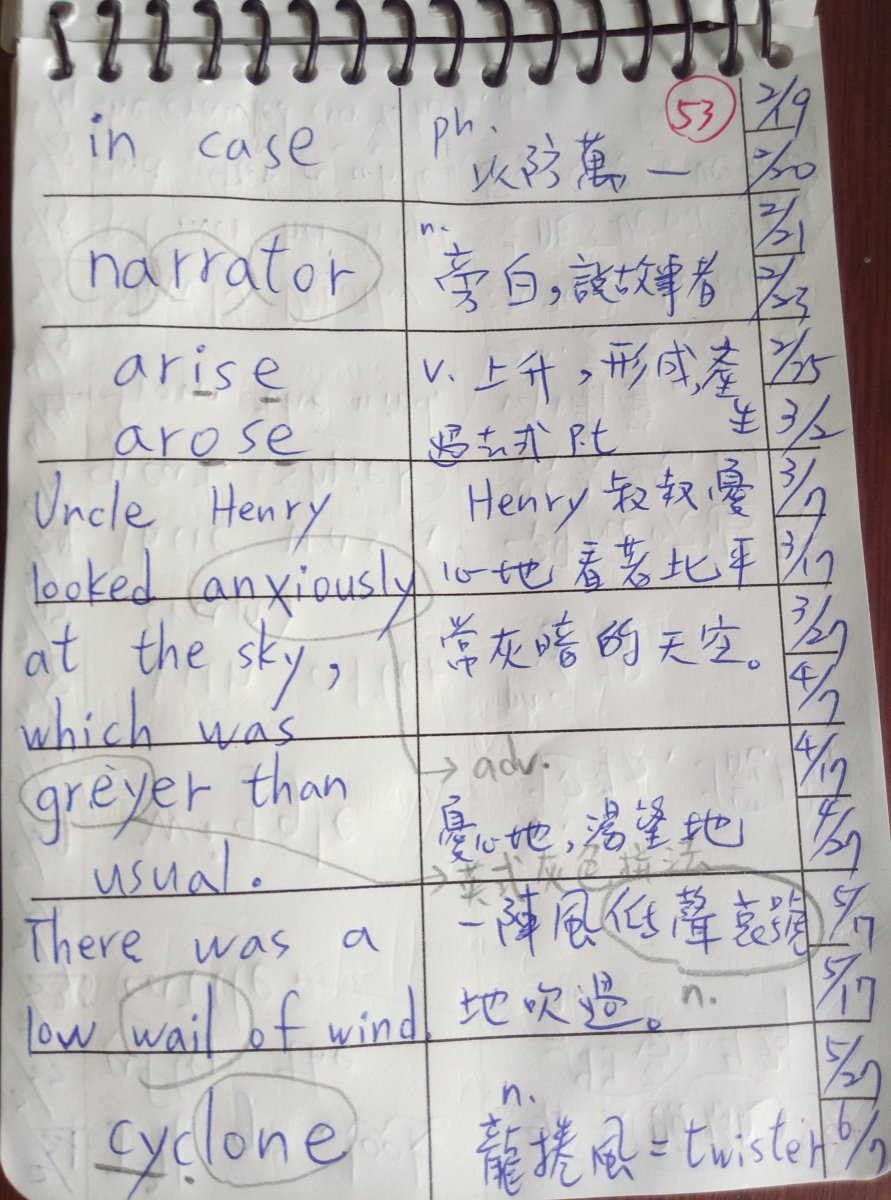 53
in case
ph.
以防萬一
narrator
n.
旁白,說故事者
arise
arose
v. 上升,形成,產
生
過去式 p.t
Uncle Henry
looked anxiously
at the sky,
which was
greyer than
usual.
Henry 叔叔憂
心地看著比平
常灰暗的天空。
→ adv.
憂心地,渴望地
→英式灰色拼法
There was a
low wail of wind.
一陣風低聲哀號
地吹過。
n.
cyclone
n.
龍捲風=twister
2/19
2/20
2/21
2/23
2/25
3/2
3/7
3/17
3/27
4/7
4/17
4/27
5/7
5/17
5/27
6/7